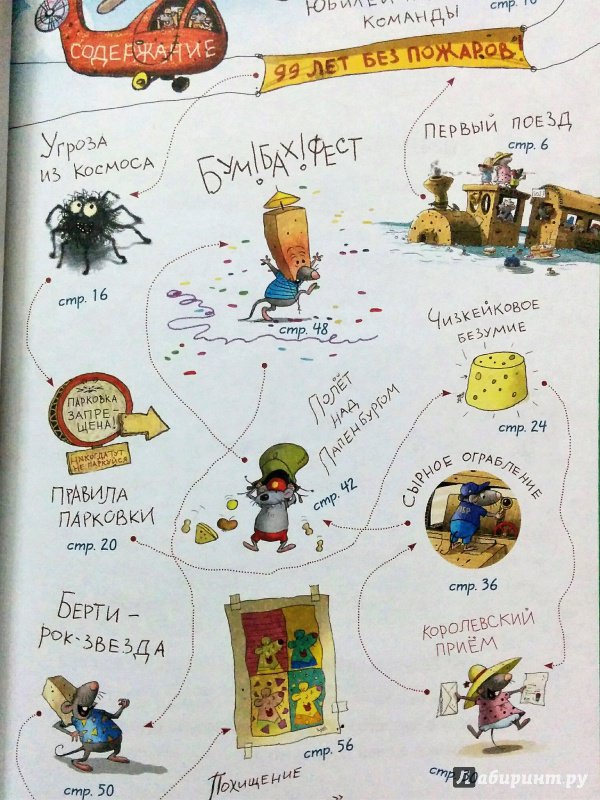 ЮБИЛЕЙ
КОМАНДЫ
стр. 10
СОДЕРЖАНИЕ
99 ЛЕТ БЕЗ ПОЖАРОВ!
УГРОЗА
ИЗ КОСМОСА
стр. 16
БУМ!БАХ!ФЕСТ
стр. 48
ПЕРВЫЙ ПОЕЗД
стр. 6
ПАРКОВКА
ЗАПРЕ-
ЩЕНА!
НИКОГДА ТУТ
НЕ ПАРКУЙСЯ
ПРАВИЛА
ПАРКОВКИ
стр. 20
ПОЛЁТ
НАД
ЛАПЕНБУРГОМ
стр. 42
ЧИЗКЕЙКОВОЕ
БЕЗУМИЕ
стр. 24
СЫРНОЕ ОГРАБЛЕНИЕ
стр. 36
БЕРТИ -
РОК-ЗВЕЗДА
стр. 50
стр. 56
КОРОЛЕВСКИЙ
ПРИЁМ
стр. 30
ПОХИЩЕНИЕ
Лабиринт.ру